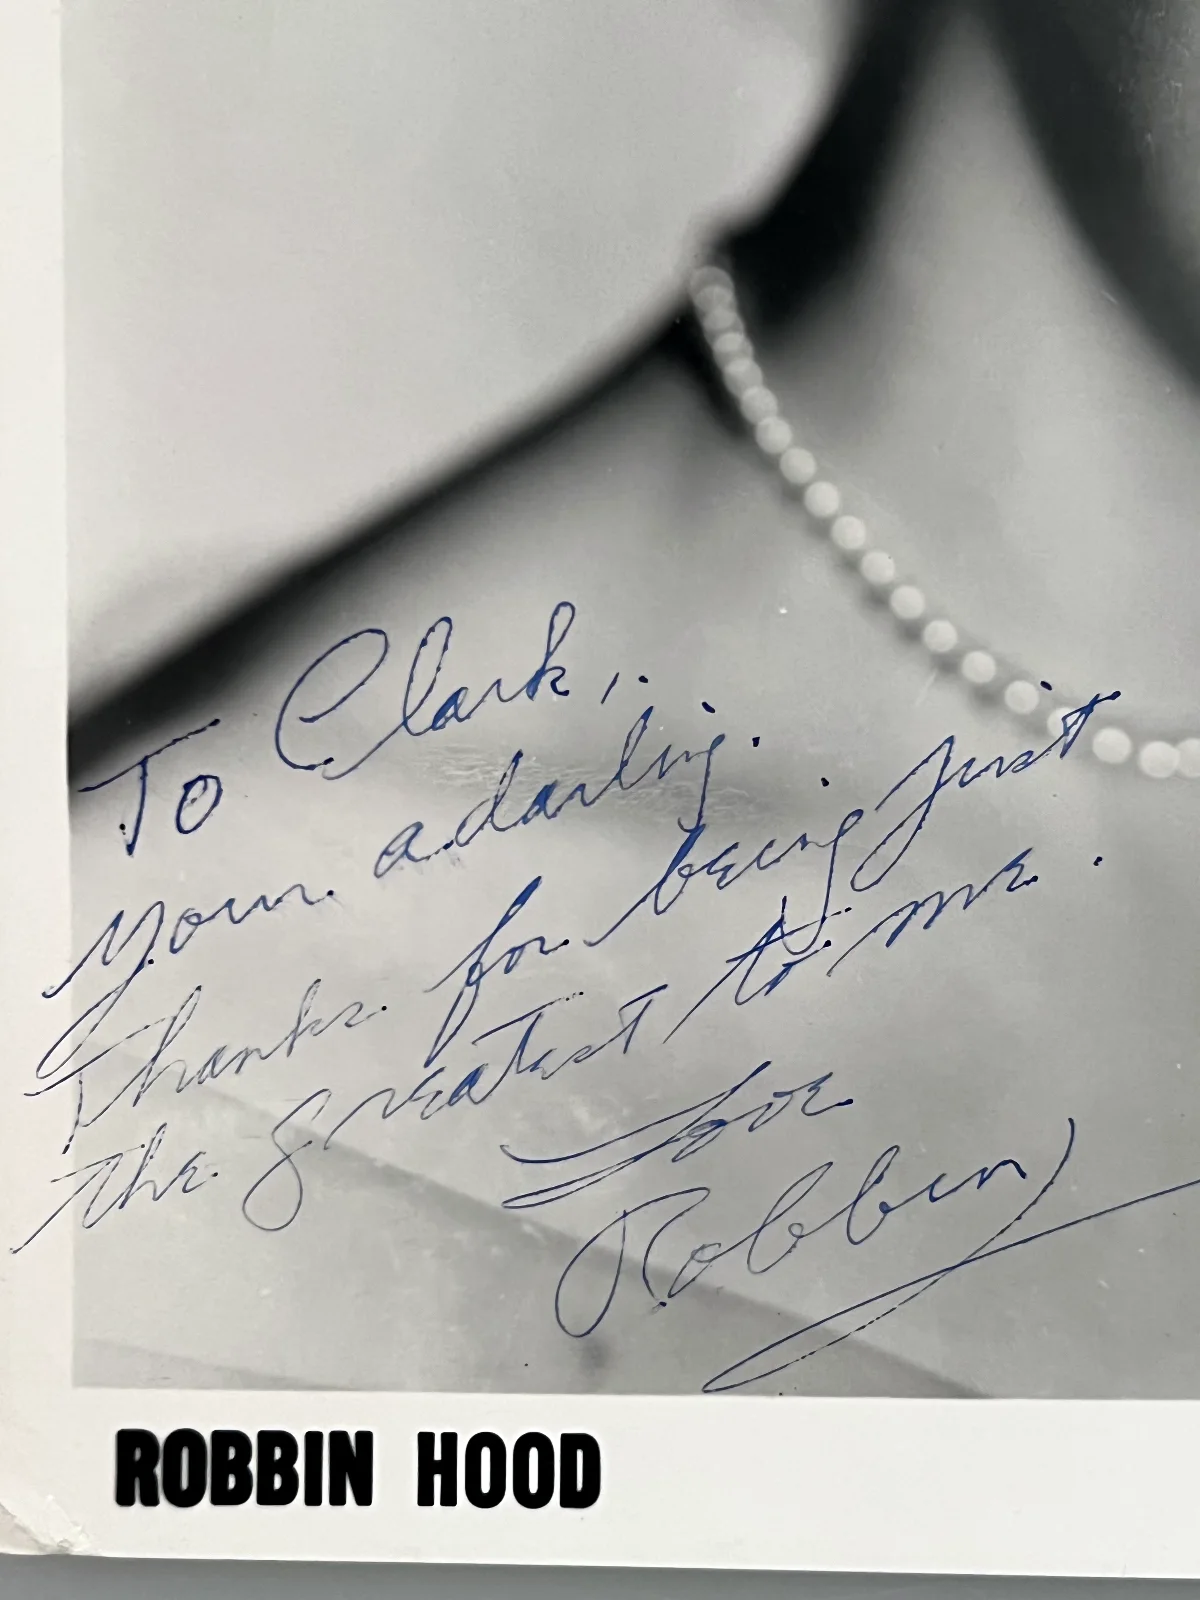 To Clark,
Your a darling.
Thanks for being just
the greatest to me.
Love
Robbin
ROBBIN HOOD